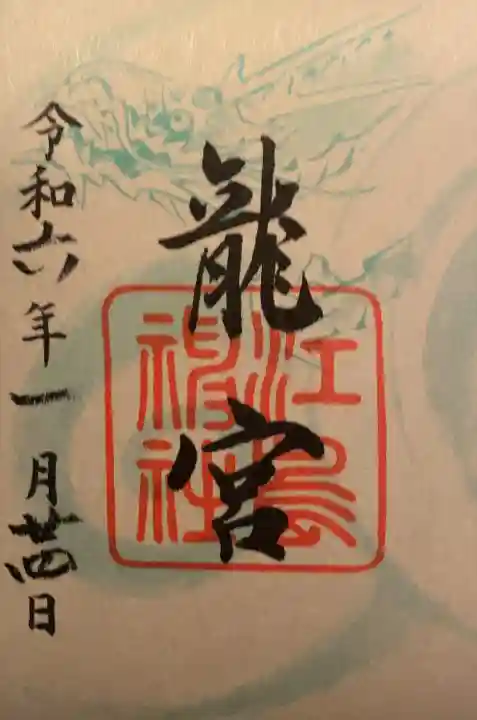 龍宮
江島神社
令和六年一月廿四日